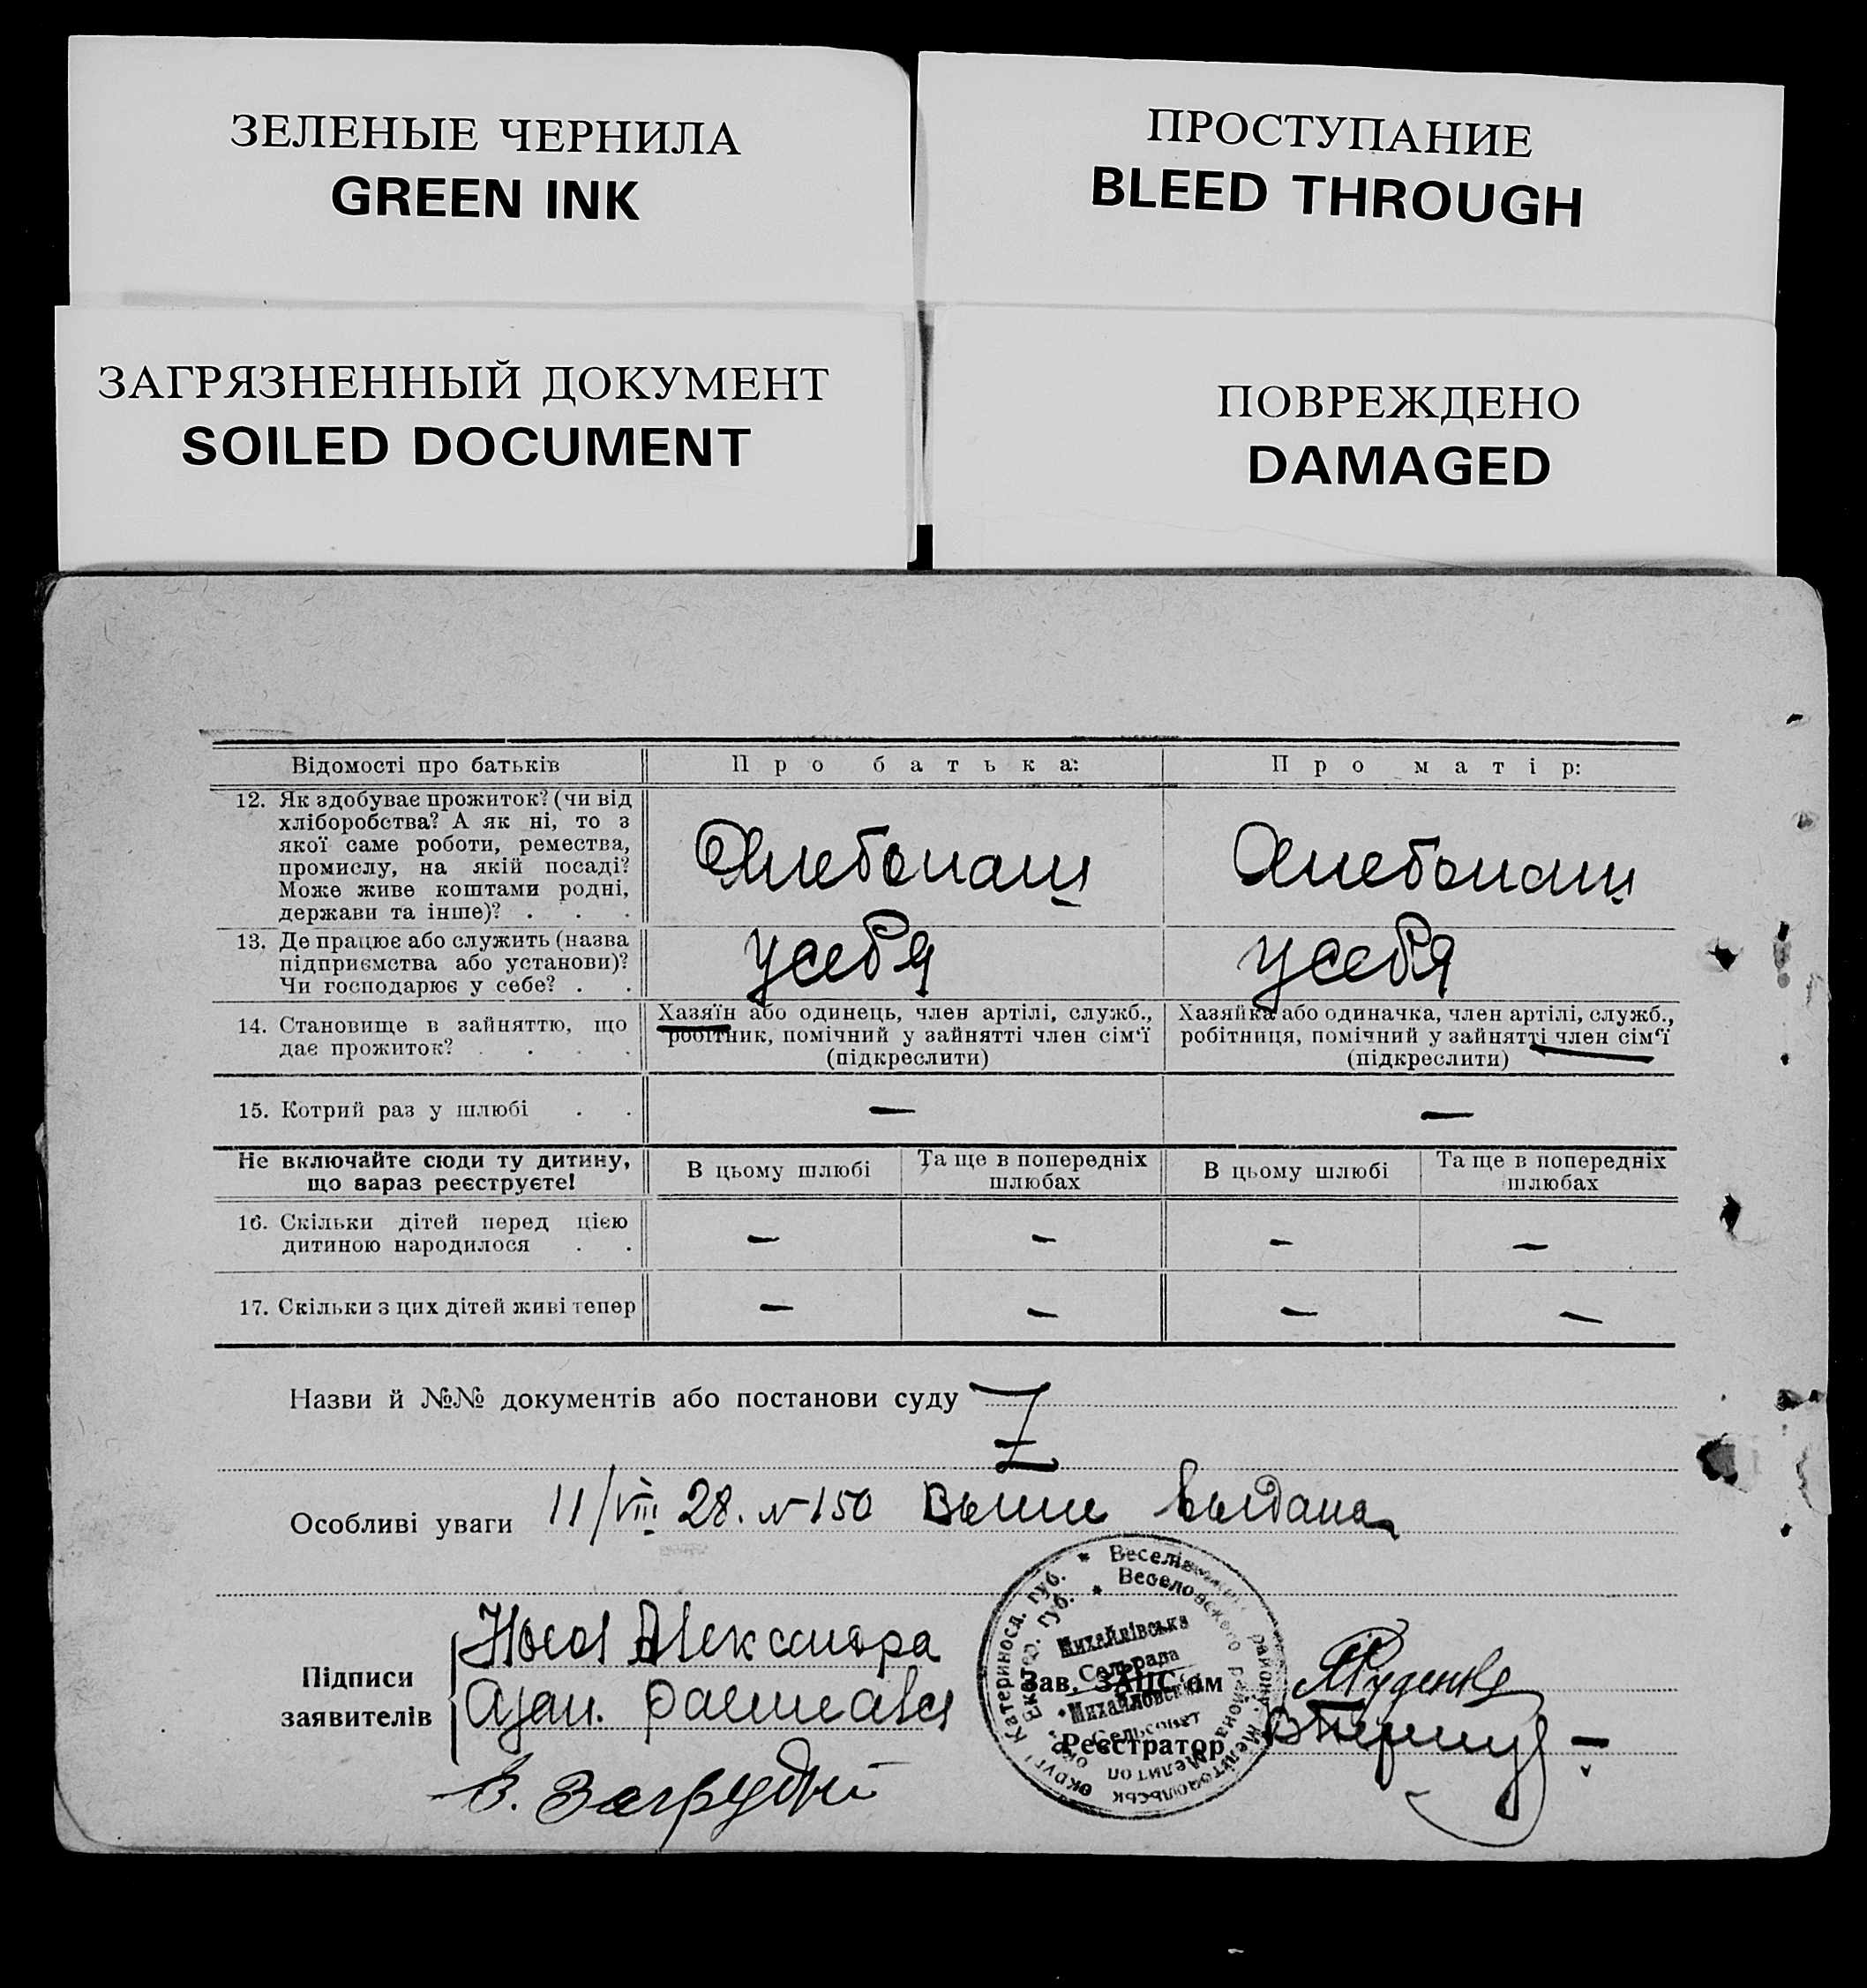 ЗЕЛЕНЫЕ ЧЕРНИЛА
GREEN INK
ПРОСТУПАНИЕ
BLEED THROUGH
ЗАГРЯЗНЕННЫЙ ДОКУМЕНТ
SOILED DOCUMENT
ПОВРЕЖДЕНО
DAMAGED
Відомості про батьків
Про батька:
Про матір:
12. Як здобуває прожиток? (чи від
хліборобства? А як ні, то з
якої саме роботи, ремества,
промислу, на якій посаді?
Може живе коштами родні,
держави та інше)? . . .
Хлебопаш
Хлебопаш
13. Де працює або служить (назва
підприємства або установи)?
Чи господарює у себе? . .
у себя
у себя
14. Становище в зайняттю, що
дає прожиток? . . . .
Хазяїн або одинець, член артілі, служб.,
робітник, помічний у зайнятті член сім'ї
(підкреслити)
Хазяйка або одиначка, член артілі, служб.,
робітниця, помічний у зайнятті член сім'ї
(підкреслити)
15. Котрий раз у шлюбі . .
—
—
Не включайте сюди ту дитину,
що зараз реєструєте!
В цьому шлюбі
Та ще в попередніх
шлюбах
В цьому шлюбі
Та ще в попередніх
шлюбах
16. Скільки дітей перед цією
дитиною народилося . .
— — — —
17. Скільки з цих дітей живі тепер
— — — —
Назви й №№ документів або постанови суду
Особливі уваги 11/VIII 28. №150 выдана
Підписи
заявителів
Александра
В.
Зав. ЗАЦС'ом
Руденко
Реєстратор
Катериносл. губ. * Веселівськ району, Мелітопольськ округ
Екатер. губ. * Веселовского района Мелитоп окр.
Михайлівська
Сельрада
Михайловский
Сельсовет